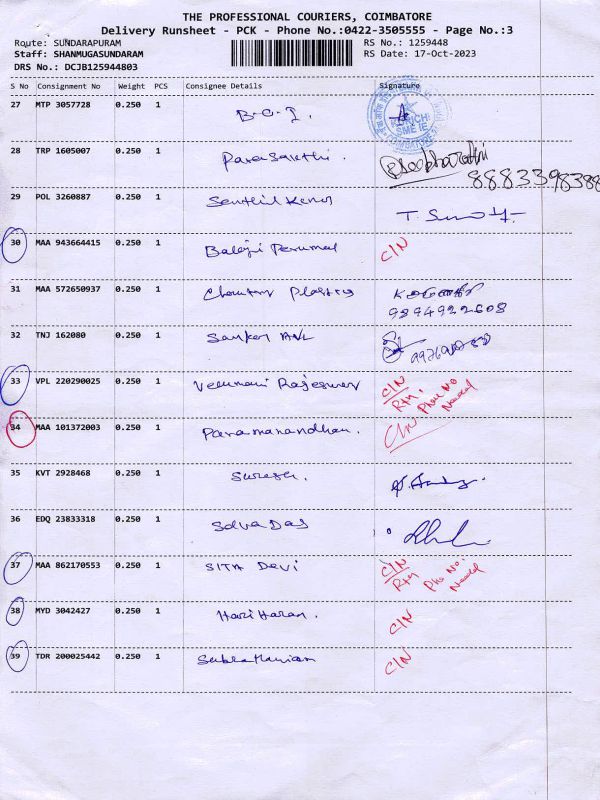 THE PROFESSIONAL COURIERS, COIMBATORE
Delivery Runsheet - PCK - Phone No.:0422-3505555 - Page No.:3
Route: SUNDARAPURAM RS No.: 1259448
Staff: SHANMUGASUNDARAM RS Date: 17-Oct-2023
DRS No.: DCJB125944803
S No Consignment No Weight PCS Consignee Details Signature
27 MTP 3057728 0.250 1 B.O.I.
28 TRP 1605007 0.250 1 Parasakthi.
8883398388
29 POL 3260887 0.250 1 Senthil
30 MAA 943664415 0.250 1 Balaji Perumal C/N
31 MAA 572650937 0.250 1 9894922608
32 TNJ 162080 0.250 1
33 VPL 220290025 0.250 1 Velumani Rajeswar C/N
Rtn, Phone No
Needed
34 MAA 101372003 0.250 1 Paramanandhan. C/N
35 KVT 2928468 0.250 1 Suresh.
36 EDQ 23833318 0.250 1 Selva Das
37 MAA 862170553 0.250 1 SITA DEVI C/N
Rtn Pho No.
Needed
38 MYD 3042427 0.250 1 Hari Haran. C/N
39 TDR 200025442 0.250 1 C/N